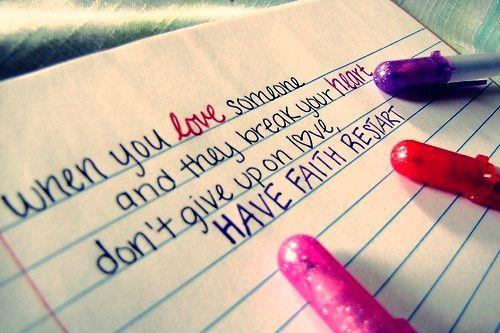 when you love someone
and they break your heart
don't give up on love,
HAVE FAITH RESTART